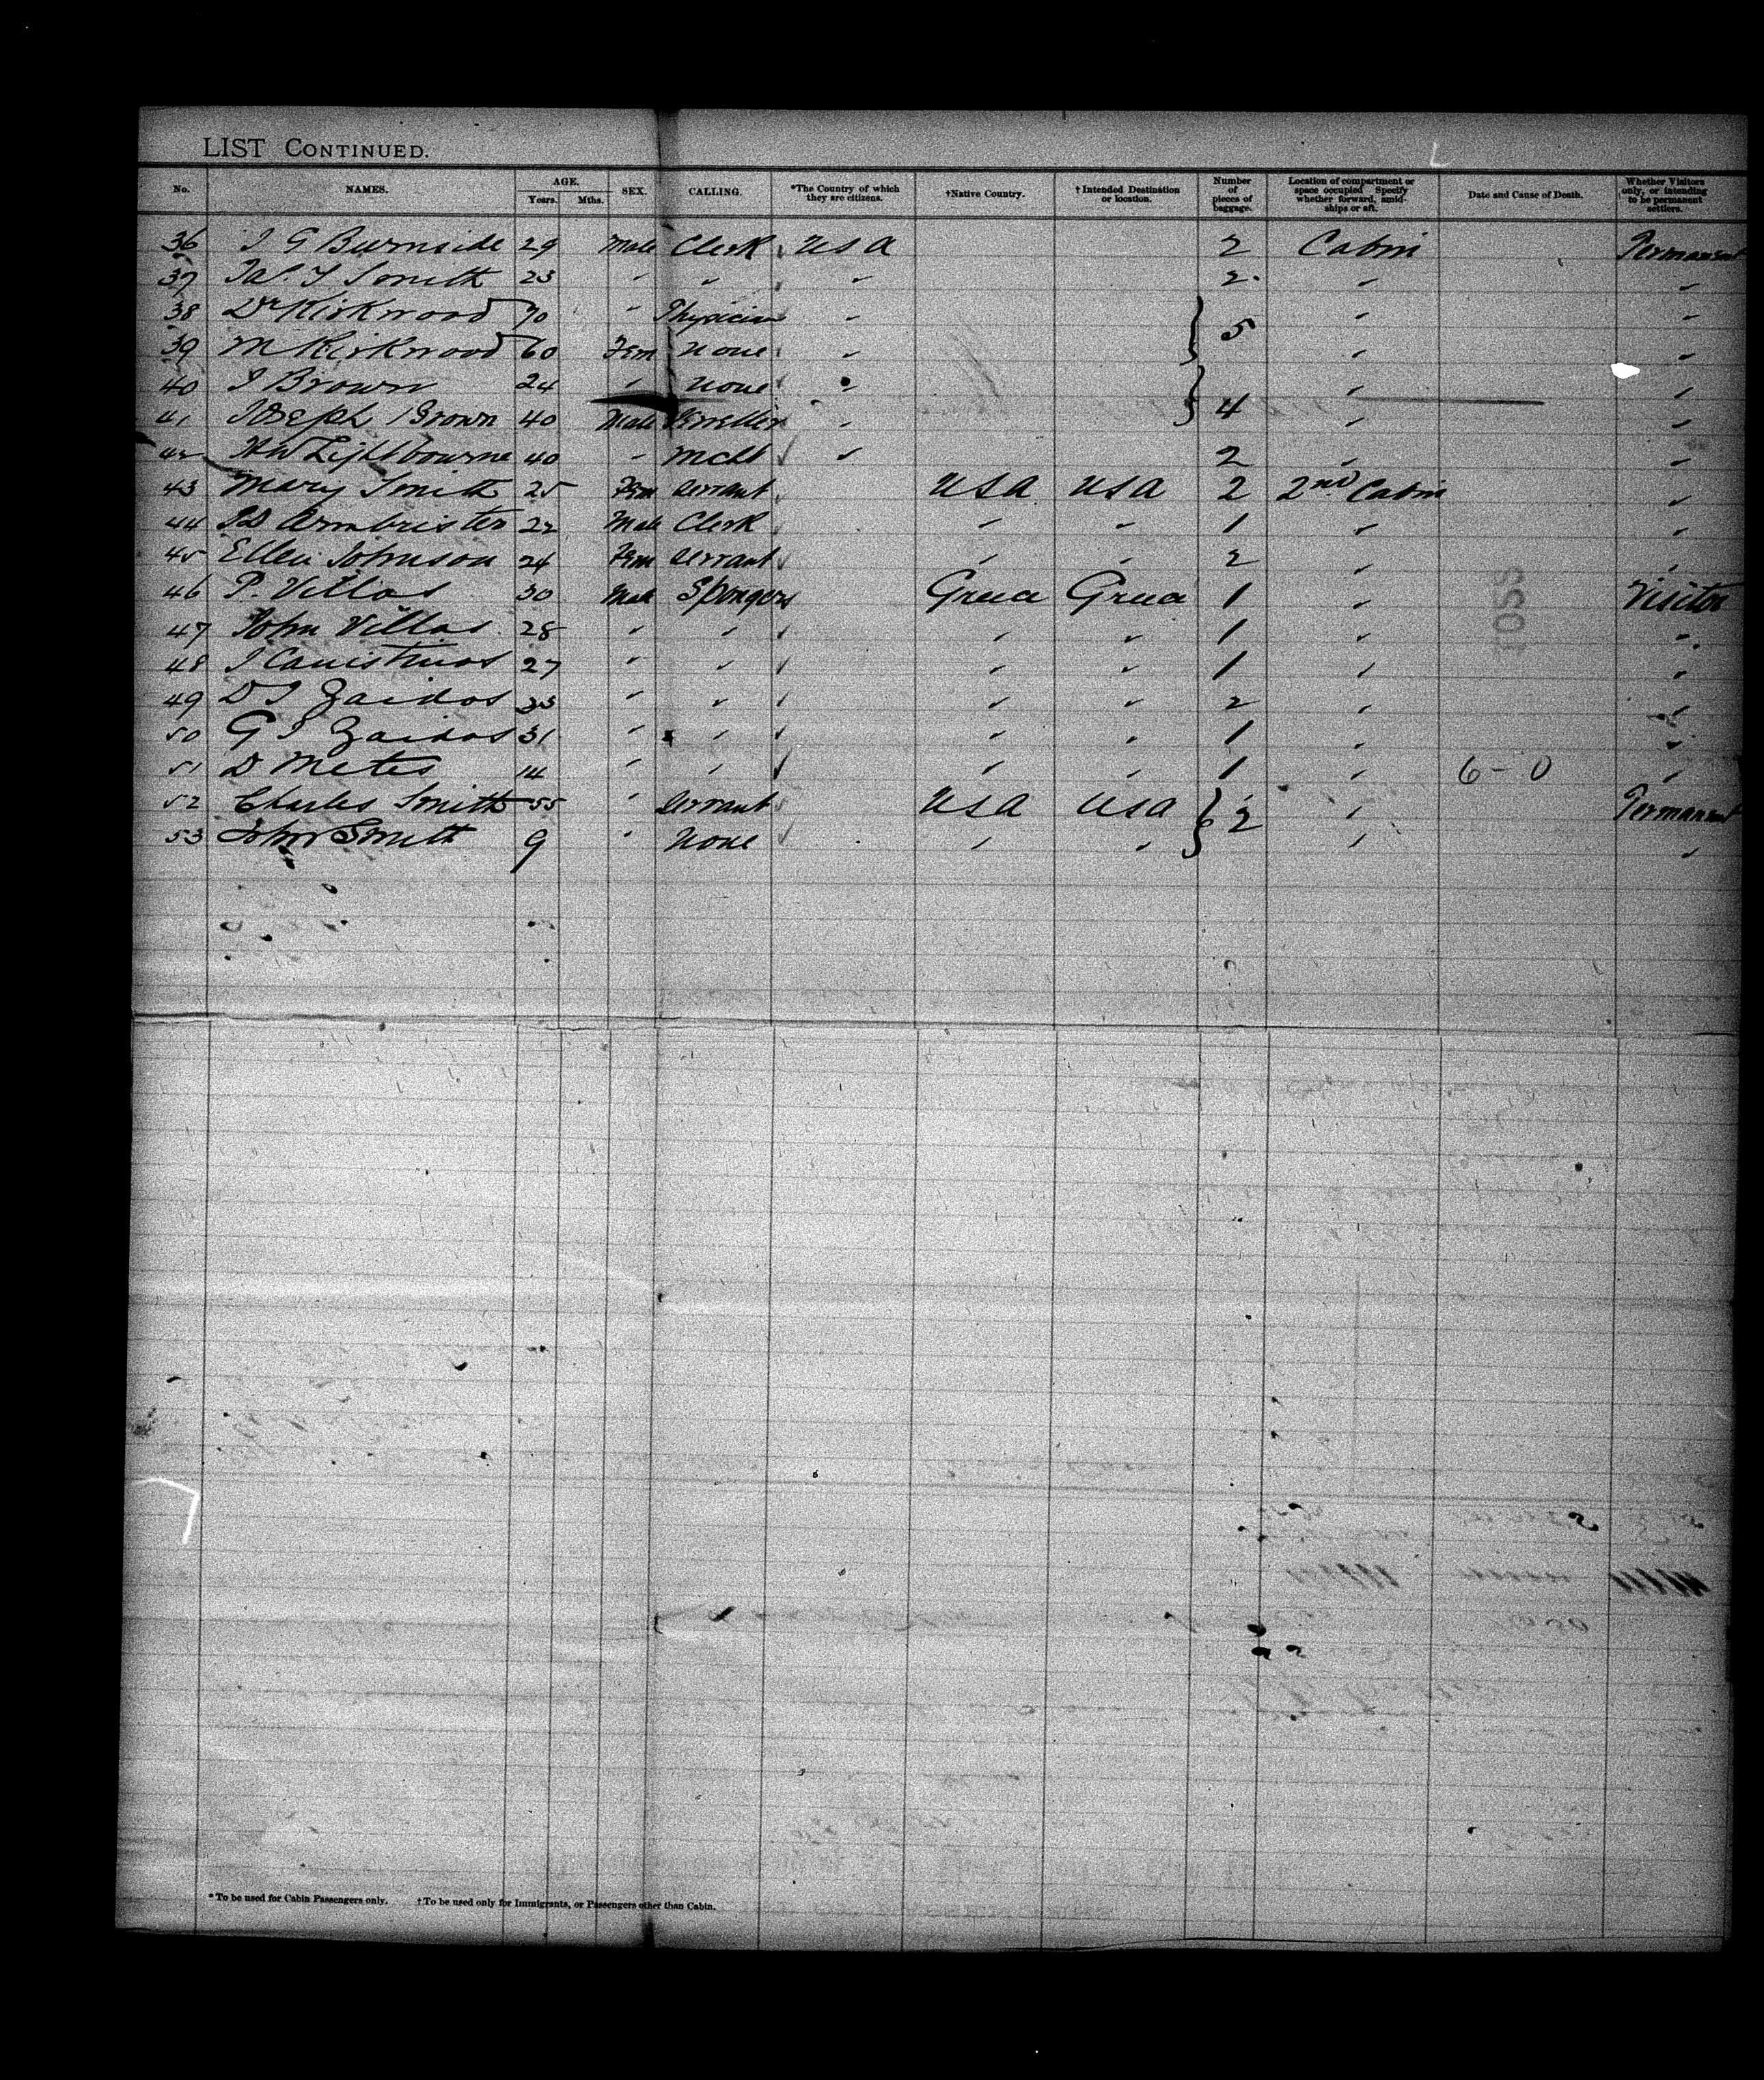 LIST CONTINUED.
No. NAMES. AGE. Years. Mths. SEX. CALLING. *The Country of which they are citizens. †Native Country. †Intended Destination or location. Number of pieces of baggage. Location of compartment or space occupied Specify whether forward, amidships or aft. Date and Cause of Death. Whether Visitors only, or intending to be permanent settlers.
36 J G Burnside 29 Male Clerk USA 2 Cabin Permanent
37 Jas. T Smith 23 " " " 2 " "
38 Dr Kirkwood 70 " Physician " 5 " "
39 M Kirkwood 60 Fem None " " "
40 J Brown 24 " None " " "
41 Joseph Brown 40 Male " 4 " "
42 HW Lightbourne 40 " Mcht " 2 " "
43 Mary Smith 25 Fem Servant USA USA 2 2nd Cabin "
44 Armbrister 22 Male Clerk " " 1 " "
45 Ellen Johnson 24 Fem Servant " " 2 " "
46 P. Villas 30 Male Spongers Greece Greece 1 " Visitor
47 John Villas 28 " " " " 1 " "
48 27 " " " " 1 " "
49 D J Zaidos 33 " " " " 2 " "
50 G J Zaidos 31 " " " " 1 " "
51 D Metes 14 " " " " 1 " 6-0 "
52 Charles Smith 55 " Servant USA USA 2 " Permanent
53 John Smith 9 " None " " " "
* To be used for Cabin Passengers only. † To be used only for Immigrants, or Passengers other than Cabin.